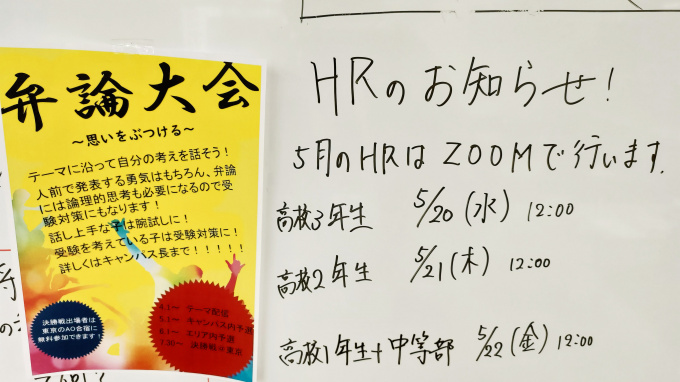 弁論大会
～思いをぶつける～
テーマに沿って自分の考えを話そう！
人前で発表する勇気はもちろん、弁論
には論理的思考も必要になるので受
験対策にもなります！
話し上手な子は腕試しに！
受験を考えている子は受験対策に！
詳しくはキャンパス長まで！！！！！
決勝戦出場者は
東京のAO合宿に
無料参加できます！
4.1～ テーマ配信
5.1～ キャンパス内予選
6.1～ エリア内予選
7.30～ 決勝戦＠東京
HRのお知らせ！
5月のHRは ZOOMで行います.
高校3年生 5/20(水) 12:00
高校2年生 5/21(木) 12:00
高校1年生+中等部 5/22(金) 12:00